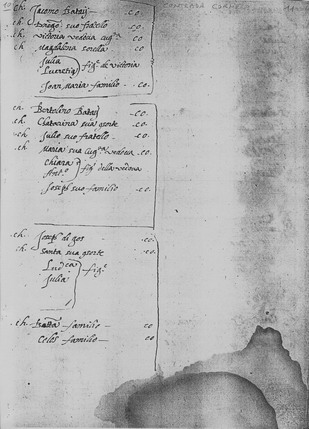 ch. Jacomo Batai co.
ch. suo fratelo co.
ch. Victoria vedova cug.ª co
ch. Magdalena sorella co
Julia
Lucretia fig.e de victoria
Joan Maria familio co.
ch. Bertolino Batai co.
ch. Chatarina sua xorte co.
ch. Julio suo fratello co.
ch Maria sua cug.ta vedova co.
Chiara
Ant.o fig.i della vedova
Joseph suo familio co.
ch. Joseph di gos co.
ch. Santa sua xorte co.
Julia fig.e
ch. familio co
Celes familio co